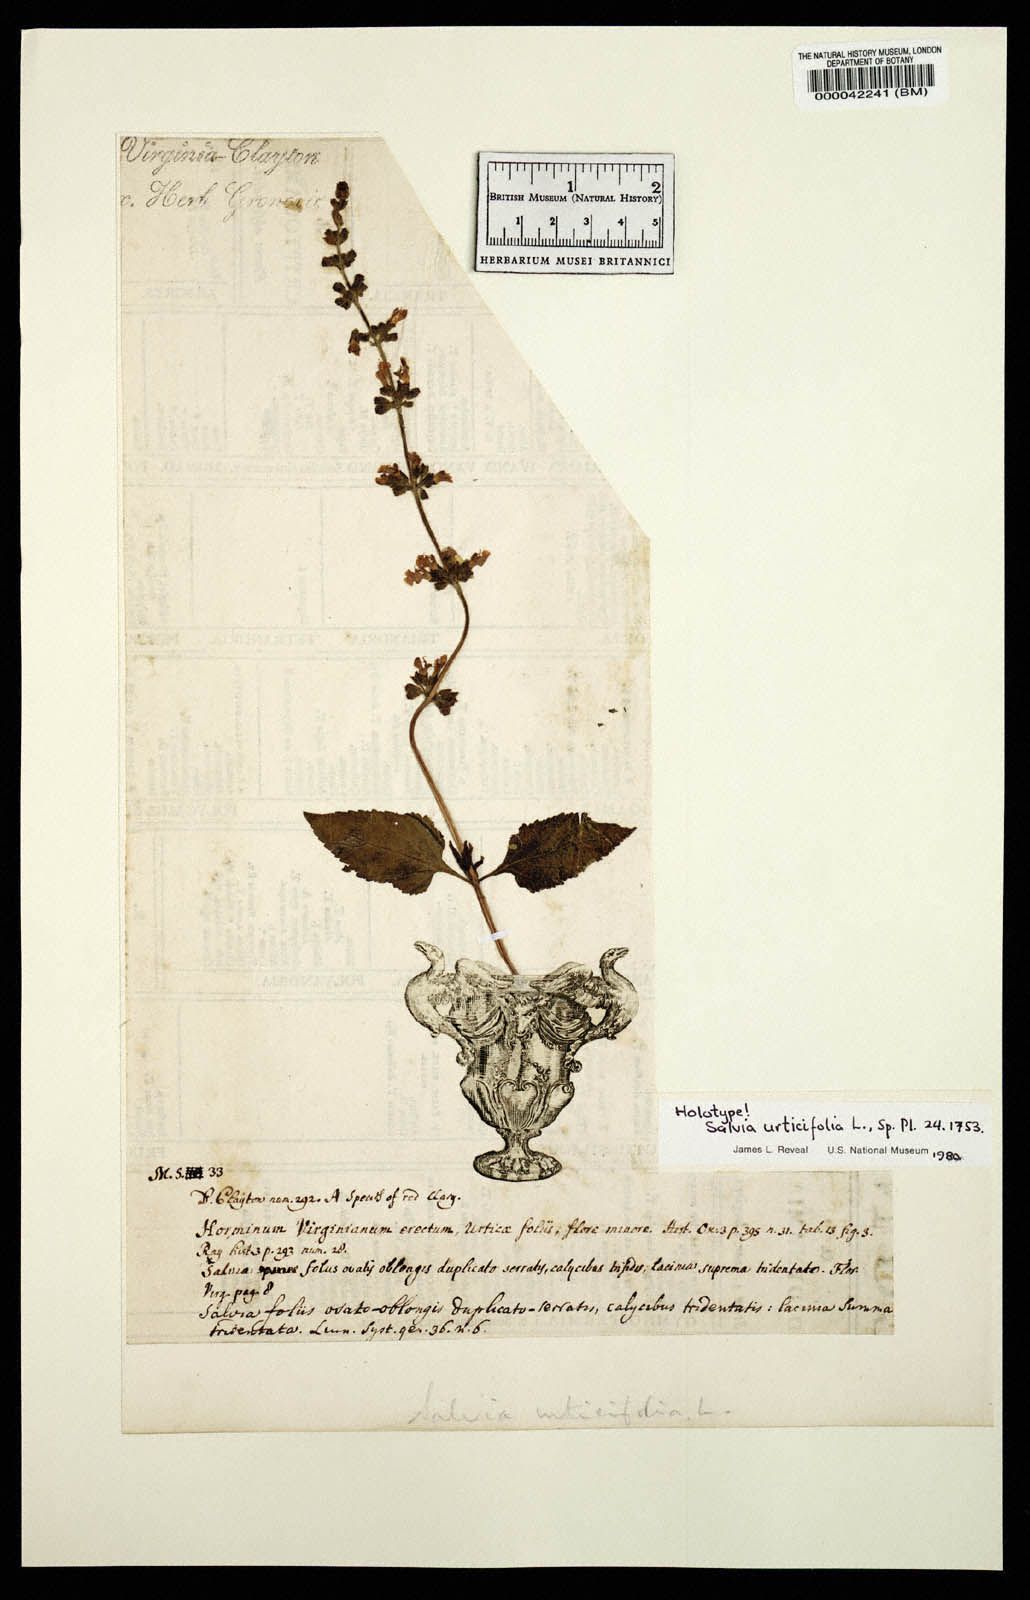 THE NATURAL HISTORY MUSEUM, LONDON
DEPARTMENT OF BOTANY
000042241 (BM)
Virginia-Clayton
Herb Gronovii
1 2
BRITISH MUSEUM (NATURAL HISTORY)
1 2 3 4 5
HERBARIUM MUSEI BRITANNICI
Holotype!
Salvia urticifolia L., Sp. Pl. 24. 1753.
James L. Reveal U.S. National Museum 1980
M. S. 33
Clayton num. 292. A Species of red Clary.
Horminum Virginianum erectum, Urticæ foliis, flore minore. Hist. Ox. 3 p. 395 n. 31. tab. 13 fig. 3.
Ray hist 3 p. 293 num. 28.
Salvia foliis ovatis oblongis duplicato serratis, calycibus trifidis, lacinia suprema tridentata. Flor.
Virg. pag. 8
Salvia foliis ovato-oblongis duplicato-serratis, calycibus tridentatis: lacinia summa
tridentata. Linn. Syst. gen. 36. n. 6.
Salvia urticifolia. L.